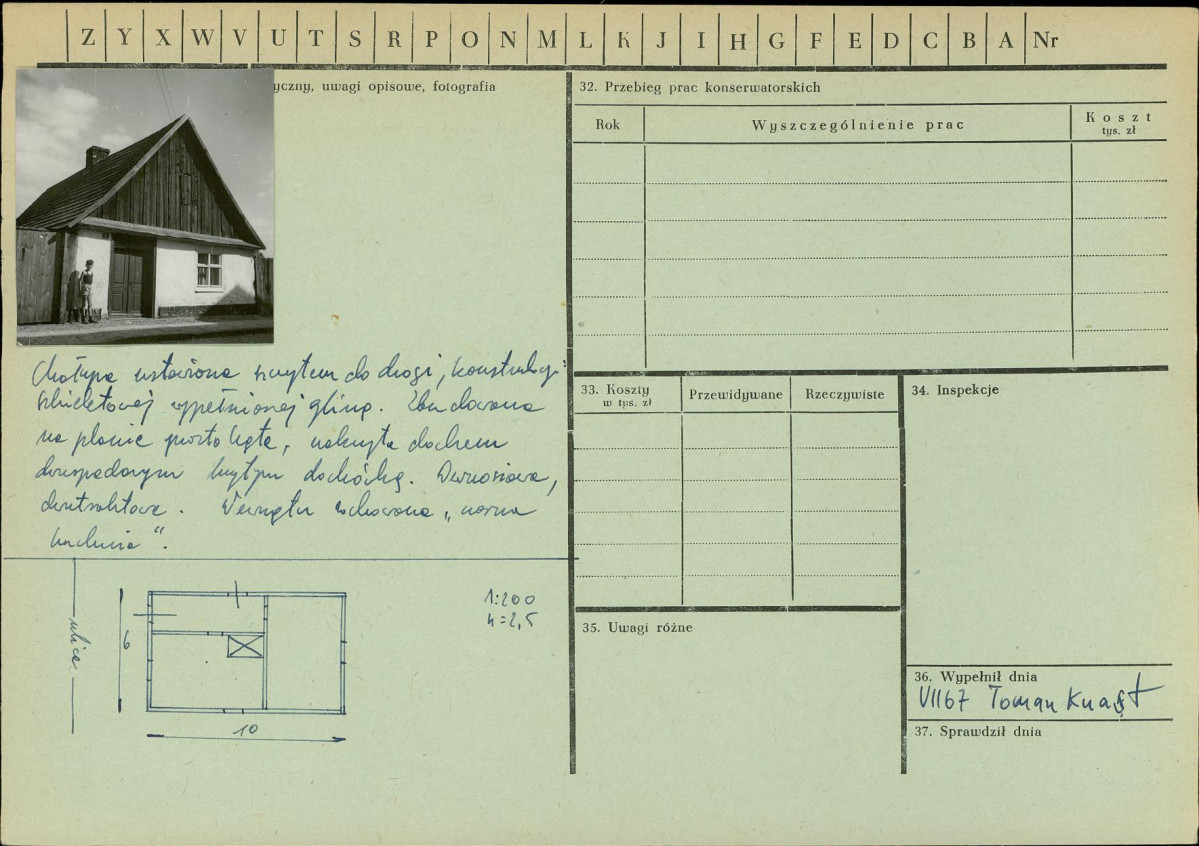 Z Y X W V U T S R P O N M L K J I H G F E D C B A Nr
yczny, uwagi opisowe, fotografia
Chałupa ustawiona szczytem do drogi, konstrukcji
szkieletowej wypełnionej gliną. Zbudowana
na planie prostokąta, nakryta dachem
dwuspadowym krytym dachówką. Dwuosiowa,
dwutraktowa. Wewnątrz zachowana „czarna
kuchnia“.
ulica
6
10
1:200
h=2,5
32. Przebieg prac konserwatorskich
Rok
Wyszczególnienie prac
Koszt
tys. zł
33. Koszty
w tys. zł
Przewidywane
Rzeczywiste
34. Inspekcje
35. Uwagi różne
36. Wypełnił dnia
VII 67 Roman Knast
37. Sprawdził dnia